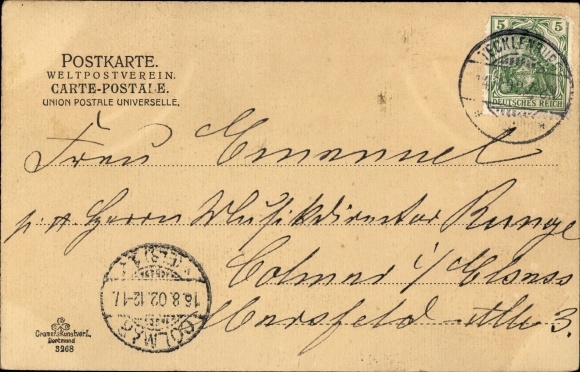 POSTKARTE.
WELTPOSTVEREIN.
CARTE-POSTALE.
UNION POSTALE UNIVERSELLE.
5 5
DEUTSCHES REICH
TECKLENBURG
Frau Emanuel
p. a. Herrn Musikdirector Runge
Colmar i/Elsass
Marsfeld-Allee 3.
COLMAR
16.8.02.12-1N.
(ELS)
Cramers Kunstverl.
Dortmund
3268